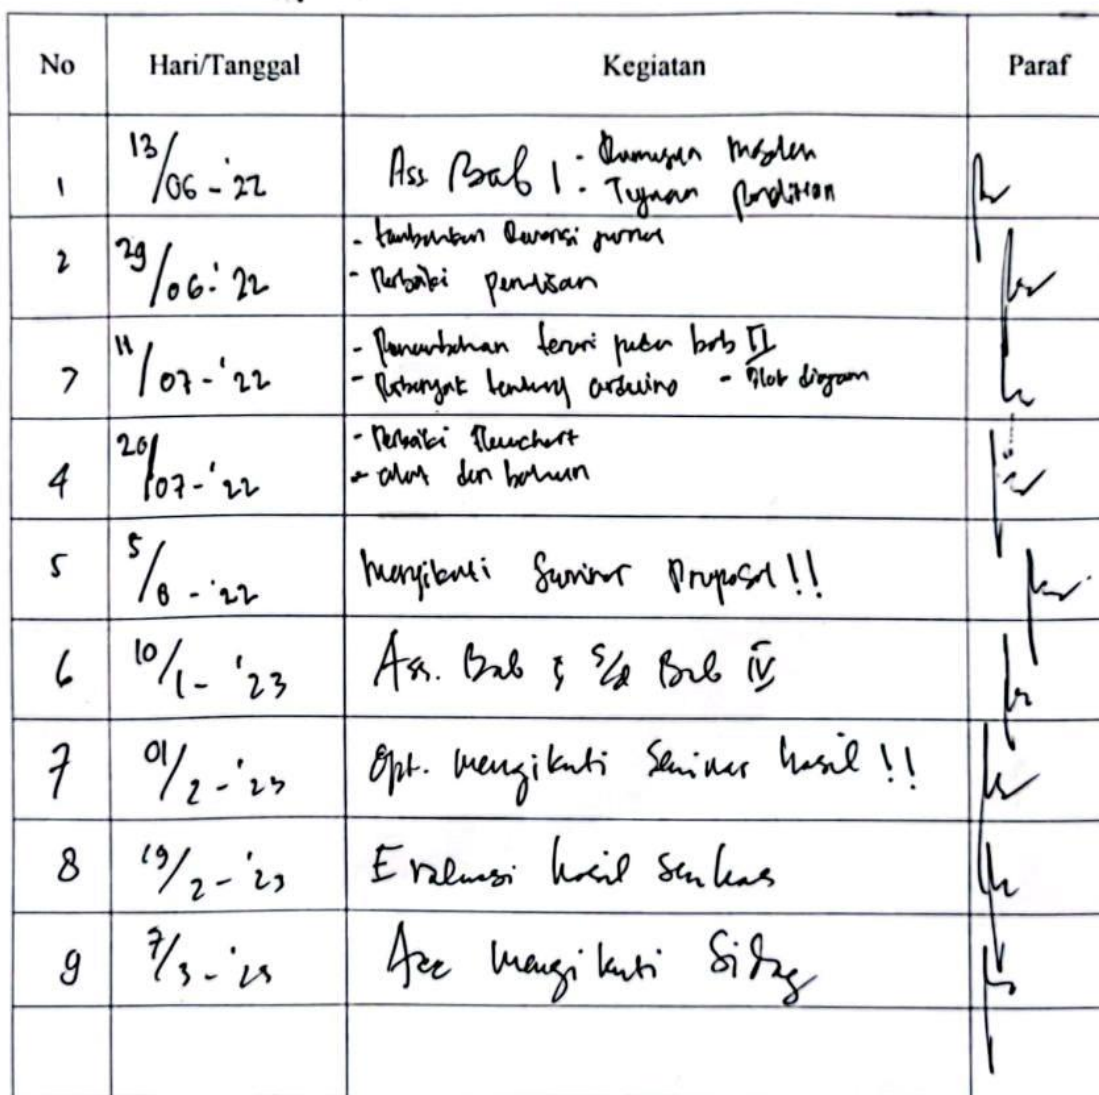 No Hari/Tanggal Kegiatan Paraf
1 13/06-'22 Ass. Bab 1 - Rumusan masalah
- Tujuan penelitian
2 29/06-'22 - tambahkan Referensi jurnal
- Perbaiki penulisan
3 11/07-'22 - Penambahan teori pada bab II
- Perbanyak tentang arduino - Blok diagram
4 20/07-'22 - Perbaiki Flowchart
- alat dan bahan
5 5/8-'22 mengikuti Seminar Proposal!!
6 10/1-'23 Ass. Bab I s/d Bab IV
7 01/2-'23 mengikuti Seminar hasil!!
8 19/2-'23 Evaluasi hasil semhas
9 7/3-'23 Acc mengikuti Sidang